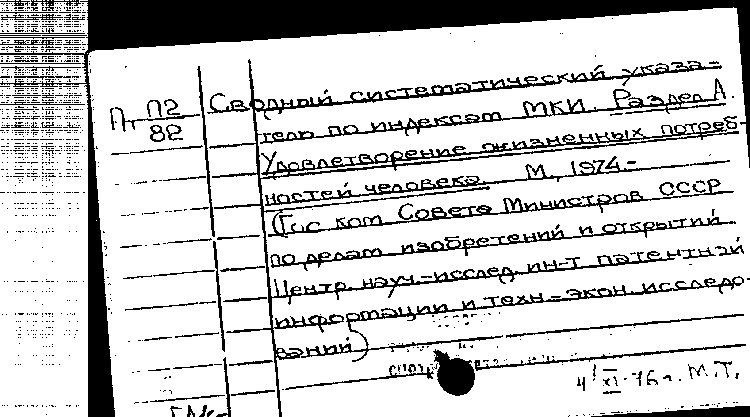 Пт П2/82
Сводный систематический указа-
тель по индексам МКИ. Раздел А.
Удовлетворение жизненных потреб-
ностей человека. М., 1974.-
(Гос ком Совета Министров СССР
по делам изобретений и открытий.
Центр. науч.-исслед. ин-т патентной
информации и техн.-экон. исследо-
ваний)
4/XI-76г. М.Т.